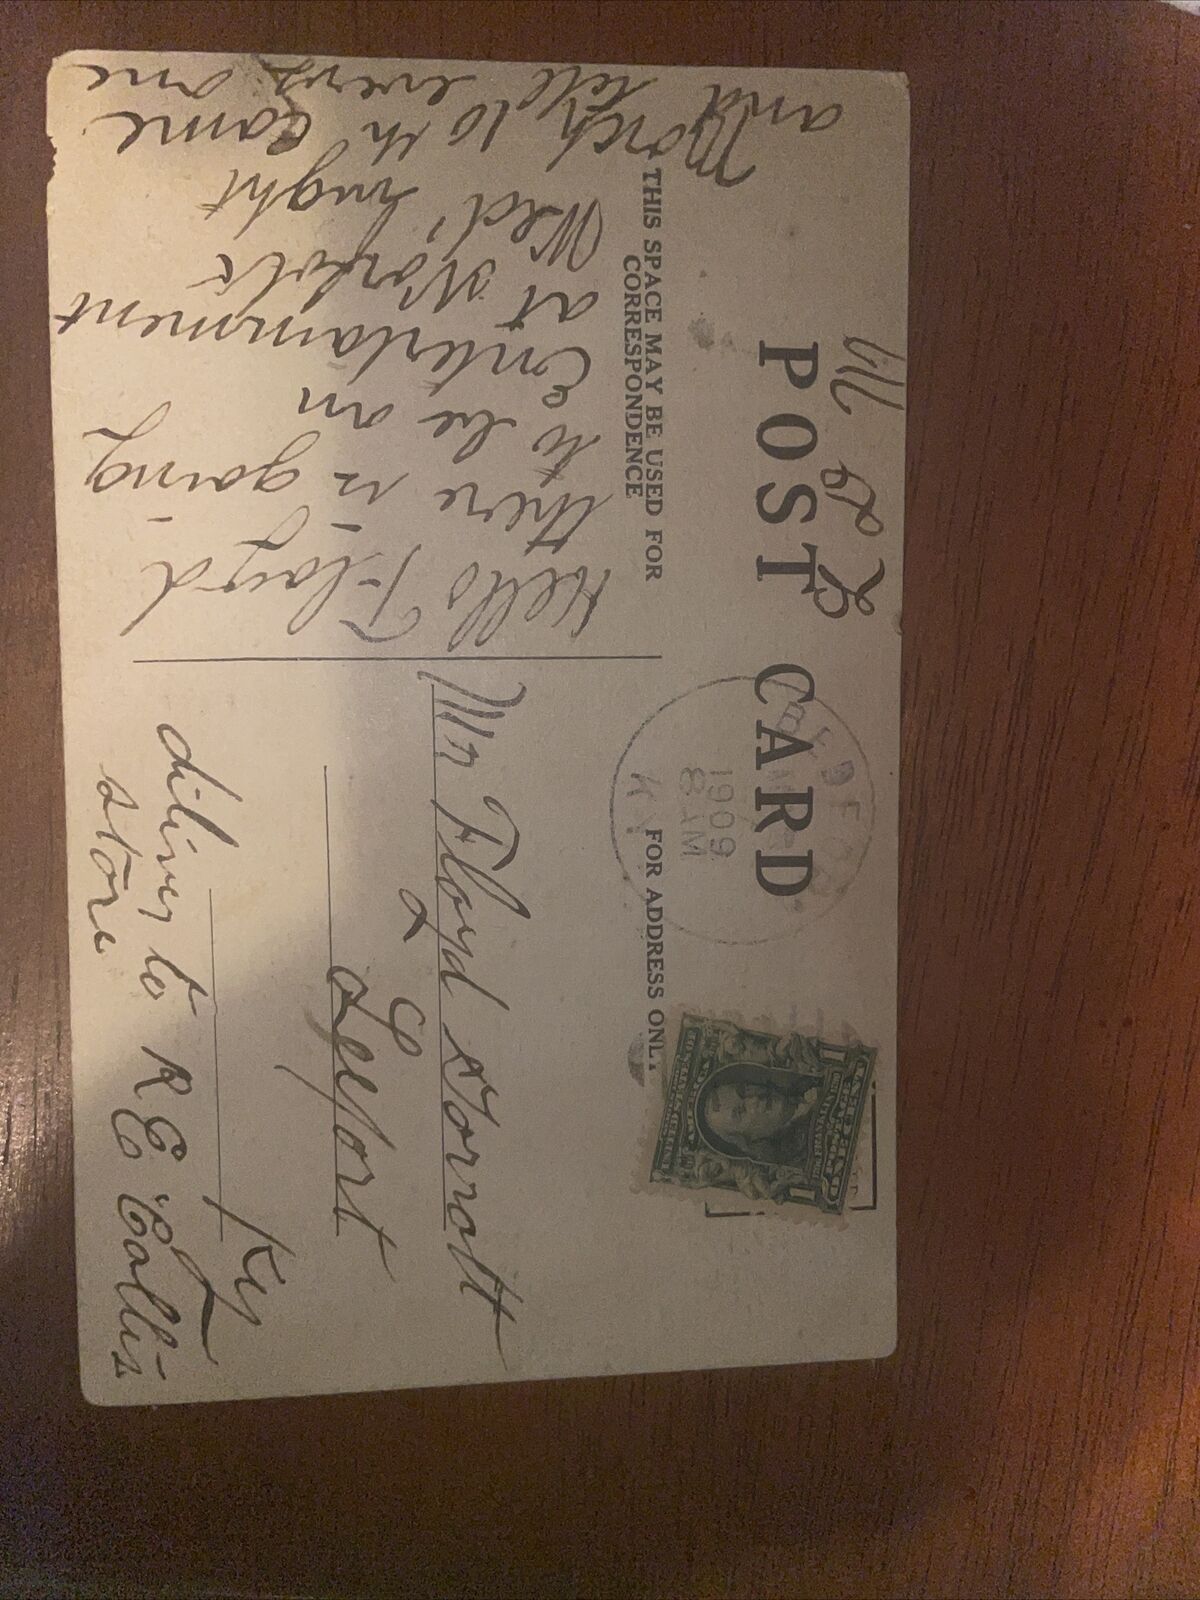 POST CARD
THIS SPACE MAY BE USED FOR
CORRESPONDENCE
FOR ADDRESS ONLY
1909
8 AM
KY
Hello Floyd
there is going
to be an
Entertainment
at Norfolk
Wed' night
March 10th Come
and tell every one
Mr Floyd
Ky
diliver to R E Collis
store